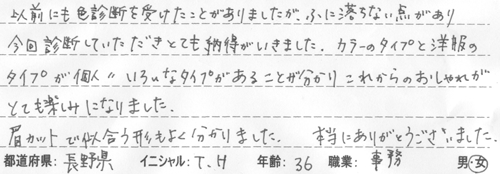 以前にも色診断を受けたことがありましたが、ふに落ちない点があり
今回診断していただきとても納得がいきました。カラーのタイプと洋服の
タイプが個人〃いろいろなタイプがあることが分かりこれからのおしゃれが
とても楽しみになりました。
眉カットで似合う形もよく分かりました。 本当にありがとうございました。
都道府県: 長野県 イニシャル: T.H 年齢: 36 職業: 事務 男・女